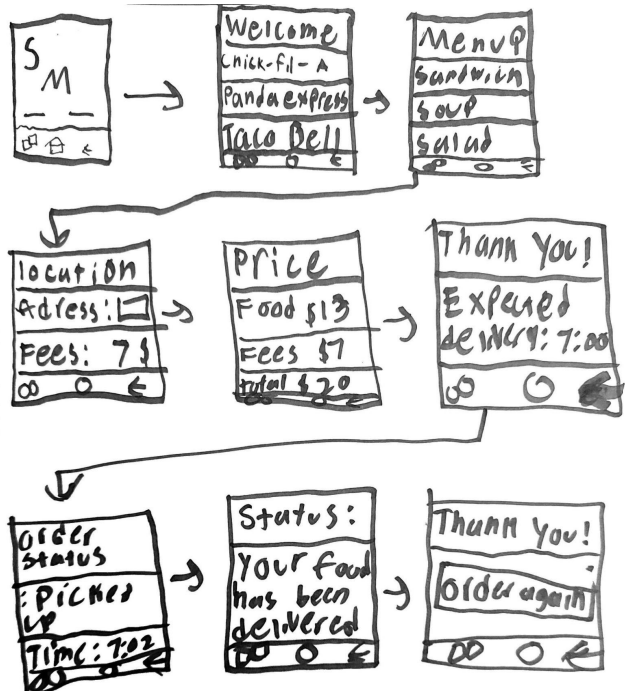 S
M
Welcome
Chick-fil-A
Panda express
Taco Bell
Menu
Sandwich
Soup
Salad
location
Adress:
Fees: 7$
Price
Food $13
Fees $7
total $20
Thank You!
Expected
delivery: 7:00
order
status
: Picked
up
Time: 7:02
Status:
Your food
has been
delivered
Thank You!
order again